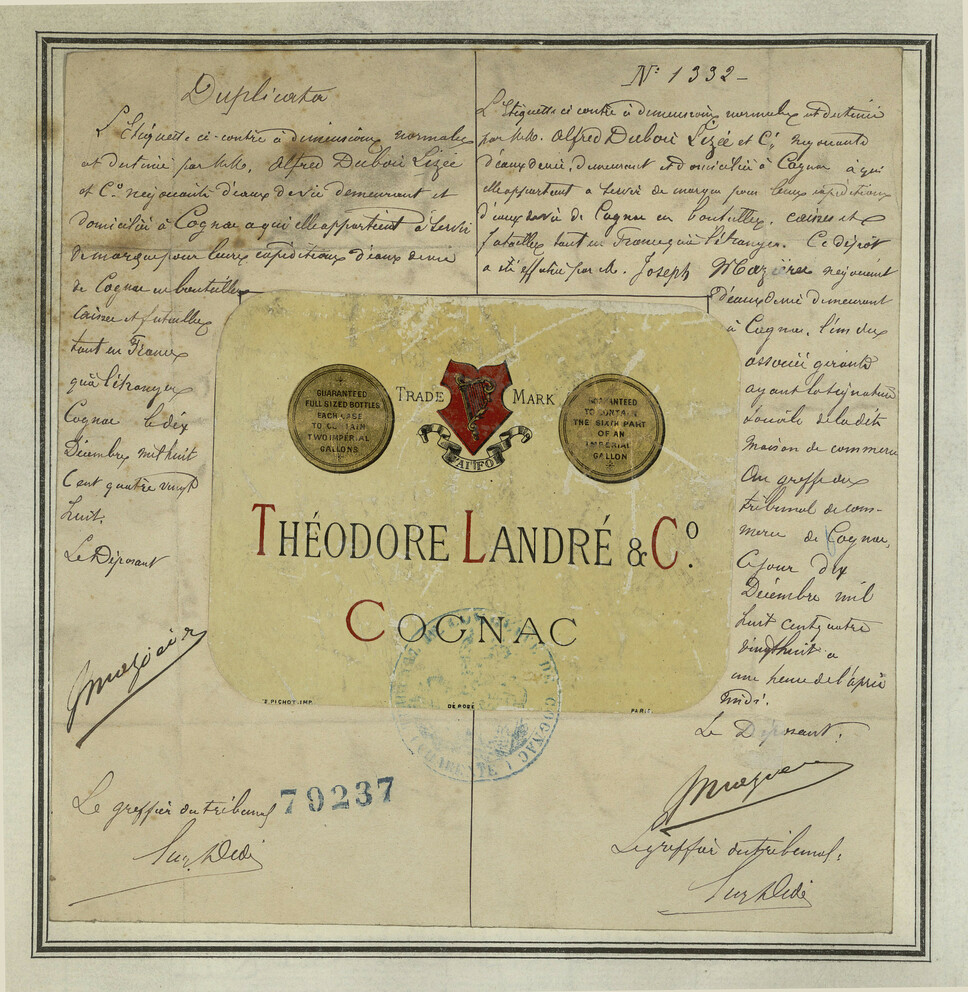 Duplicata
L'Etiquette ci-contre à dimensions normales
est destinée par MM. Alfred Dubois Lizée
et Cº négociants d'eaux de vie demeurant et
domiciliés à Cognac a qui elle appartient à servir
de marque pour leurs expéditions d'eaux de vie
de Cognac en bouteilles
caisses et futailles
tant en France
qu'à l'étranger
Cognac le dix
Décembre mil huit
Cent quatre vingt
huit.
Le Déposant
Le greffier du tribunal
79237
Nº 1332
L'Etiquette ci contre à dimensions normales est destinée
par MM. Alfred Dubois Lizée et Cº, négociants
d'eaux de vie, demeurant et domiciliés à Cognac à qui
elle appartient a servir de marque pour leurs expéditions
d'eaux de vie de Cognac en bouteilles, caisses et
futailles tant en France qu'à l'étranger. Ce dépôt
a été effectué par M. Joseph Mazière négociant
d'eaux de vie demeurant
à Cognac, l'un des
associés gérants
ayant la signature
sociale de la dite
maison de commerce
Au greffe du
tribunal de com-
merce de Cognac,
Ce jour dix
Décembre mil
huit cent quatre
vingt huit a
une heure de l'après
midi.
Le Déposant.
Le greffier du tribunal.
GUARANTEED
FULL SIZED BOTTLES
EACH CASE
TO CONTAIN
TWO IMPERIAL
GALLONS
TRADE MARK
GUARANTEED
TO CONTAIN
THE SIXTH PART
OF AN
IMPERIAL
GALLON
THÉODORE LANDRÉ & Cº.
COGNAC
PICHOT. IMP.
DÉPOSÉ
PARIS
DE COGNAC
CHARENTE